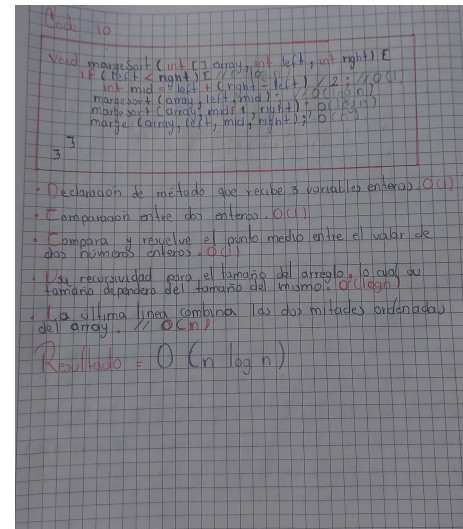 Code 10
void margeSort (int [] array, int left, int right) {
if (left < right) { // O(1)
int mid = left + (right - left) / 2; // O(1)
margesort (array, left, mid); // O(log n)
margesort (array, mid + 1, right); O(log n)
marge (array, left, mid, right); O(n)
}
}
· Declaración de método que recibe 3 variables enteras. O(1)
· Comparación entre dos enteros. O(1)
· Compara y resuelve el punto medio entre el valor de
dos números enteros. O(1)
· Usa recursividad para el tamaño del arreglo, lo cual su
tamaño dependera del tamaño del mismo. O(logn)
· La ultima linea combina las dos mitades ordenadas
del array. // O(n)
Resultado = O (n log n)